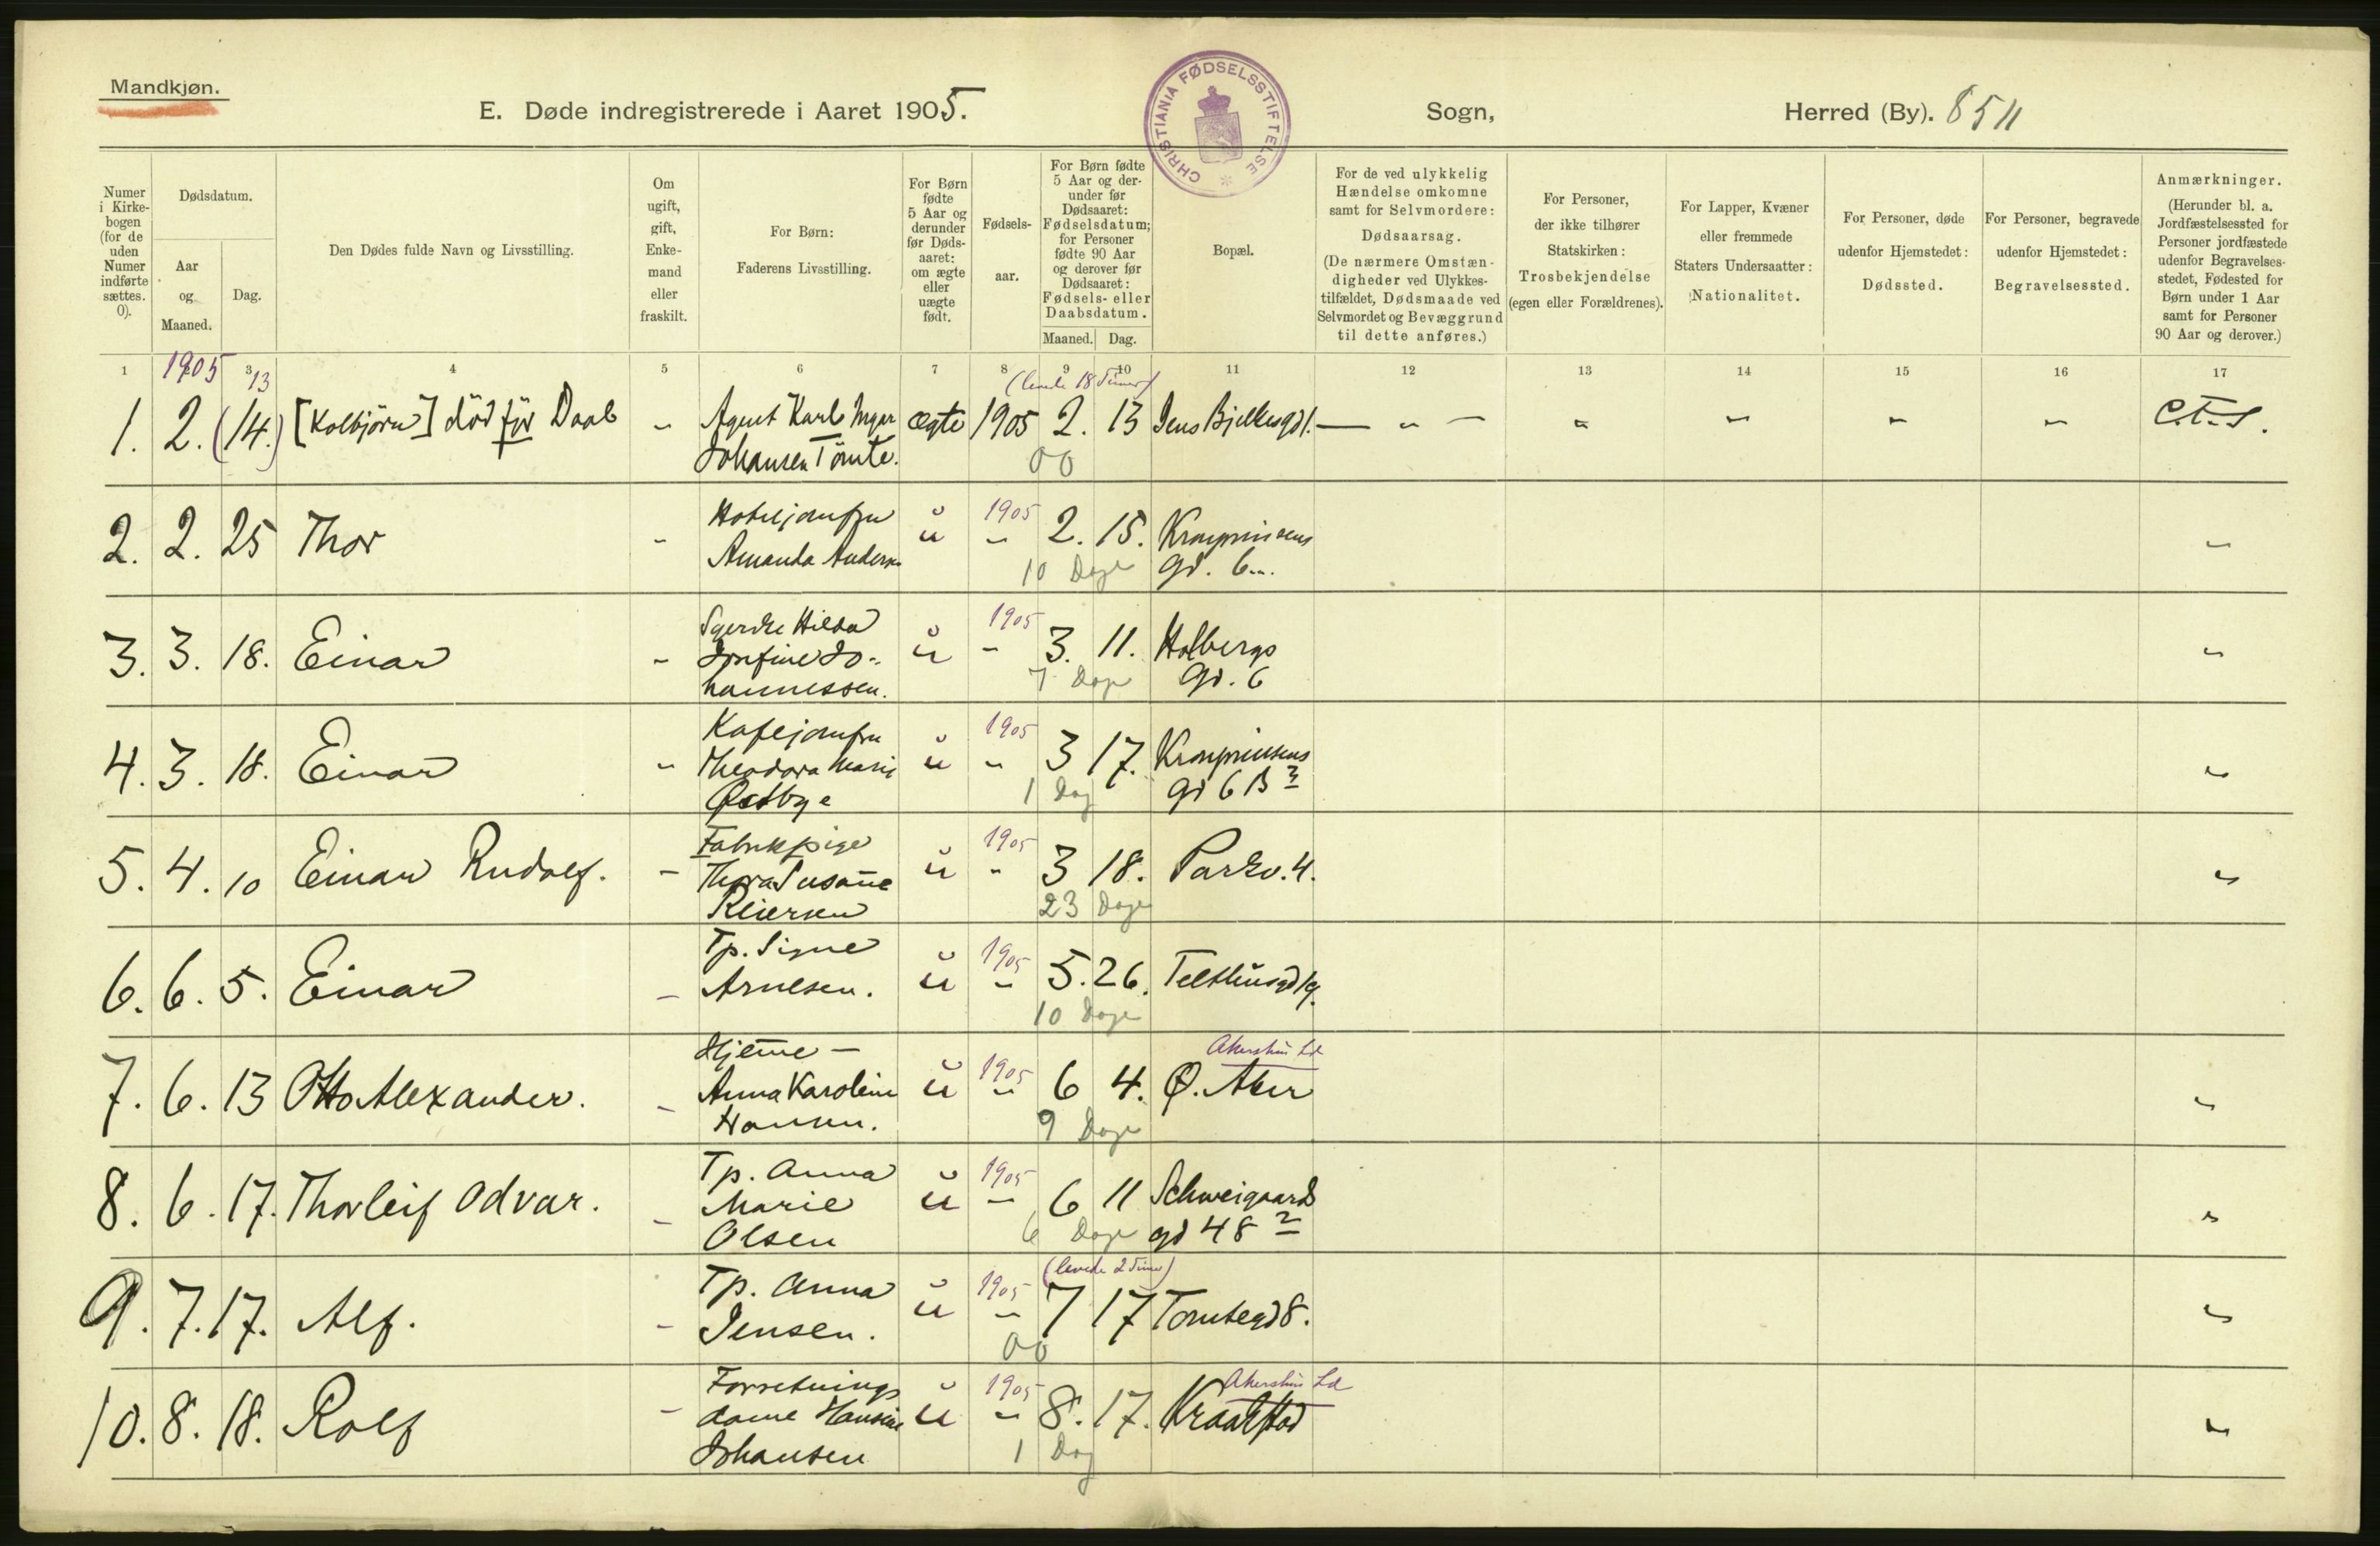 Mandkjøn.
E. Døde indregistrerede i Aaret 1905.
CHRISTIANIA FØDSELSSTIFTELSE
Sogn,
Herred (By). 8511
Numer
i Kirke-
bogen
(for de
uden
Numer
indførte
sættes.
0).
Dødsdatum.
Aar
og
Maaned.
Dag.
Den Dødes fulde Navn og Livsstilling.
Om
ugift,
gift,
Enke-
mand
eller
fraskilt.
For Børn:
Faderens Livsstilling.
For Børn
fødte
5 Aar og
derunder
før Døds-
aaret:
om ægte
eller
uægte
født.
Fødsels-
aar.
For Børn fødte
5 Aar og der-
under før
Dødsaaret:
Fødselsdatum;
for Personer
fødte 90 Aar
og derover før
Dødsaaret:
Fødsels- eller
Daabsdatum.
Maaned. Dag.
Bopæl.
For de ved ulykkelig
Hændelse omkomne
samt for Selvmordere:
Dødsaarsag.
(De nærmere Omstæn-
digheder ved Ulykkes-
tilfældet, Dødsmaade ved
Selvmordet og Bevæggrund
til dette anføres.)
For Personer,
der ikke tilhører
Statskirken:
Trosbekjendelse
(egen eller Forældrenes).
For Lapper, Kvæner
eller fremmede
Staters Undersaatter:
Nationalitet.
For Personer, døde
udenfor Hjemstedet:
Dødssted.
For Personer, begravede
udenfor Hjemstedet:
Begravelsessted.
Anmærkninger.
(Herunder bl. a.
Jordfæstelsessted for
Personer jordfæstede
udenfor Begravelses-
stedet, Fødested for
Børn under 1 Aar
samt for Personer
90 Aar og derover.)
1 1905 3 4 5 6 7 8 9 10 11 12 13 14 15 16 17
13 (levede 18 Timer)
1. 2. (14.) [Kolbjörn] död för Daab - Agent Karl Inger ægte 1905 2. 13 Jens Bjelkesgd 1. — " — " " " " C.F.S.
Johansen Tömte. 00
2. 2. 25 Thor - Hoteljomfru u 1905 " 2. 15. Kronprinsens "
Amanda Andersen 10 Dage gd. 6
3. 3. 18. Einar - Syerske Hilda u 1905 " 3. 11. Holbergs "
Josefine Jo-
hannessen. 7 Dage gd. 6
4. 3. 18. Einar " Kafejomfru u 1905 " 3 17. Kronprinsens "
Theodora Marie
Østbye 1 Dag gd 6 B 3
5. 4. 10 Einar Rudolf. - Fabrikpige u 1905 " 3 18. Parkv. 4. "
Thora Susanne
Reiersen 23 Dage
6. 6. 5. Einar - Tp. Signe u 1905 " 5. 26. Telthusgd 19.
Arnesen. 10 Dage
7. 6. 13 Otto Alexander. - Hjemme - u 1905 " 6 4. Ø. Aker "
Akershus Ld
Anna Karoline
Hansen. 9 Dage
8. 6. 17. Thorleif Odvar. - Tp. Anna u 1905 " 6 11 Schweigaards "
Marie
Olsen 6 Dage gd 48 2
(levede 2 Timer)
9. 7. 17. Alf. - Tp. Anna u 1905 " 7 17 Tomtegd 8. "
Jensen. 00
10. 8. 18. Rolf - Forretnings u 1905 " 8. 17. Kraakstad "
Akershus Ld
dame Hansine
Johansen 1 Dag